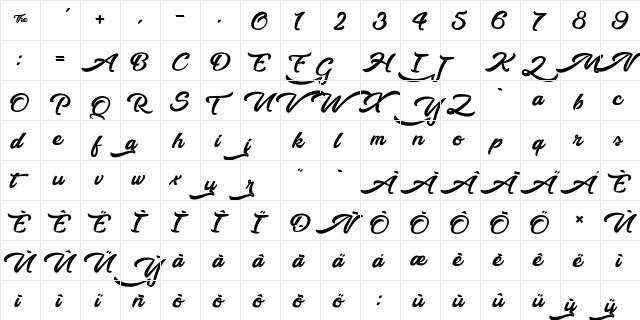 The ´ + , - . O 1 2 3 4 5 6 7 8 9
: = A B C D E F G H I J K L M N
O P Q R S T U V W X Y Z ` a b c
d e f g h i j k l m n o p q r s
t u v w x y z ¨ ` À Á Â Ã Ä Å È
É Ê Ë Ì Í Î Ï Ð Ñ Ò Ó Ô Õ Ö × Ù
Ú Û Ü Ý à á â ã ä å æ è é ê ë ì
í î ï ñ ò ó ô õ ö : ù ú û ü ý ÿ